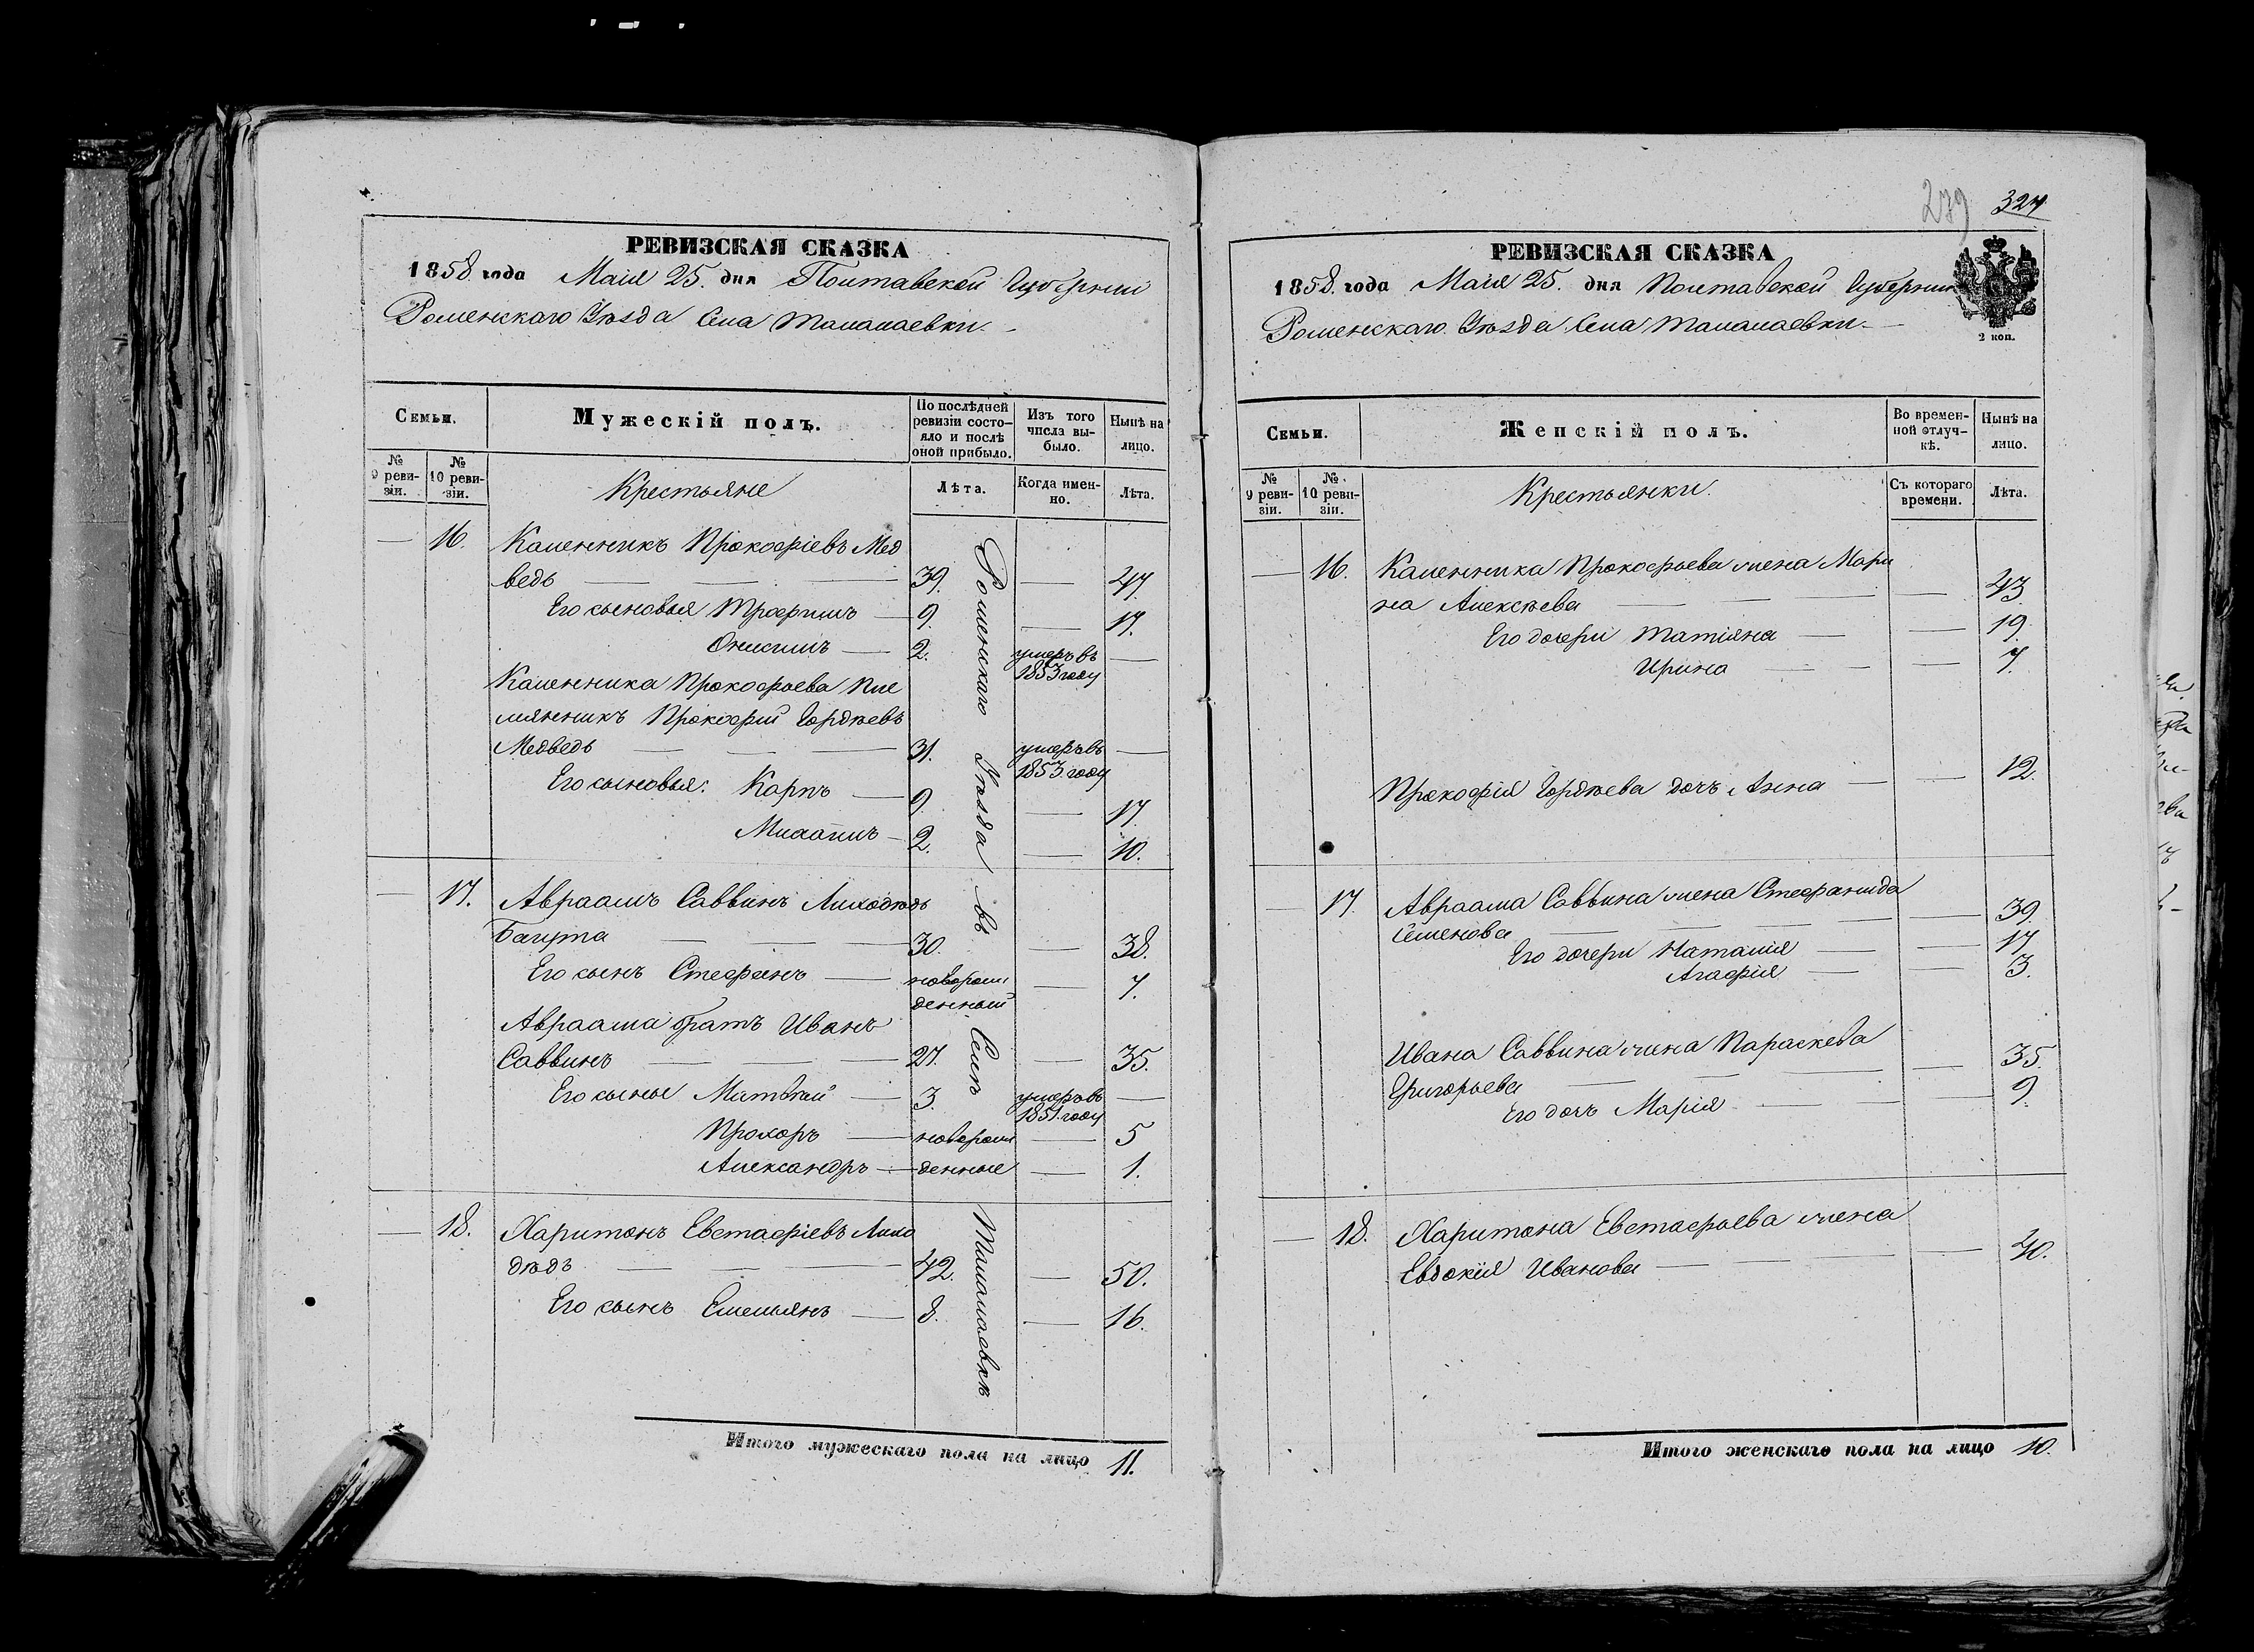 279 327
РЕВИЗСКАЯ СКАЗКА
1858 года Маія 25. дня Полтавской Губерніи
Роменскаго Уѣзда Села Талалаевки.
Семьи.
Мужескій полъ.
По послѣдней ревизіи состояло и послѣ оной прибыло.
Изъ того числа выбыло.
Нынѣ на лицо.
№ 9 ревизіи.
№ 10 ревизіи.
Крестьяне
Лѣта.
Когда именно.
Лѣта.
— 16. Каленникъ Прокофіевъ Мед
ведь — 39. — 47.
Его сыновья Трофимъ — 9. — 17.
Онисимъ — 2. умеръ въ 1853 году —
Каленника Прокофьева пле
мянникъ Прокофий Гордѣевъ
Медведь — 31. умеръ въ 1853 году —
Его сыновья: Карпъ — 9. — 17.
— 2. — 10.
— 17. Авраамъ Саввинъ Лиходѣдъ
— 30. — 38.
Его сынъ Стефанъ — новорожденный — 7.
Авраама братъ Иванъ
Саввинъ — 27. — 35.
Его сыны Матвѣй — 3. умеръ въ 1851 году —
Прохоръ — новорож — 5
Александръ — денные — 1.
— 18. Харитонъ Евстафіевъ Лихо
дѣдъ — 42. — 50.
Его сынъ Емельянъ — 8. — 16.
Роменскаго Уѣзда въ Селѣ Талалаевкѣ
Итого мужескаго пола на лицо 11.
РЕВИЗСКАЯ СКАЗКА
1858. года Маія 25. дня Полтавской Губерніи
Роменскаго Уѣзда Села Талалаевки
2 коп.
Семьи.
Женскій полъ.
Во временной отлучкѣ.
Нынѣ на лицо.
№ 9 ревизіи.
№ 10 ревизіи.
Крестьянки.
Съ котораго времени.
Лѣта.
— 16. Каленника Прокофьева жена Мари
на Алексѣева — — 43.
Его дочери Татіяна — — 19.
Ирина — — 7.
Прокофія Гордѣева дочь Анна — — 12.
— 17. Авраама Саввина жена Стефанида
Семенова — — 39.
Его дочери Наталія — — 17.
Агафія — — 3.
Ивана Саввина жена Параскева
Григорьева — — 35.
Его дочь Марія — — 9.
— 18. Харитона Евстафьева жена
Евдокія Иванова — — 40.
Итого женскаго пола на лицо 10.